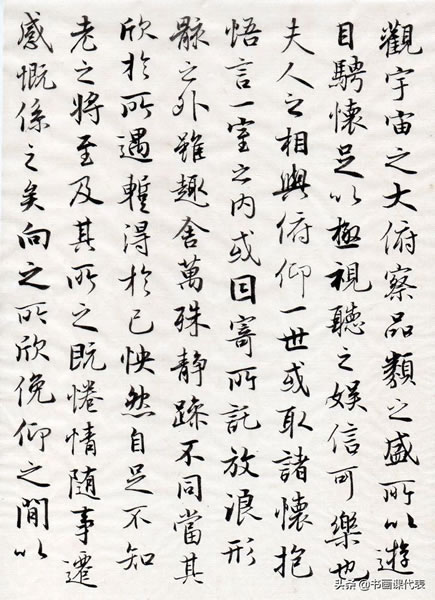 觀宇宙之大俯察品類之盛所以遊
目騁懷足以極視聽之娛信可樂也
夫人之相與俯仰一世或取諸懷抱
悟言一室之内或因寄所託放浪形
骸之外雖趣舍萬殊静躁不同當其
欣於所遇蹔得於己怏然自足不知
老之將至及其所之既惓情随事遷
感慨係之矣向之所欣俛仰之閒以
头条 @书画课代表